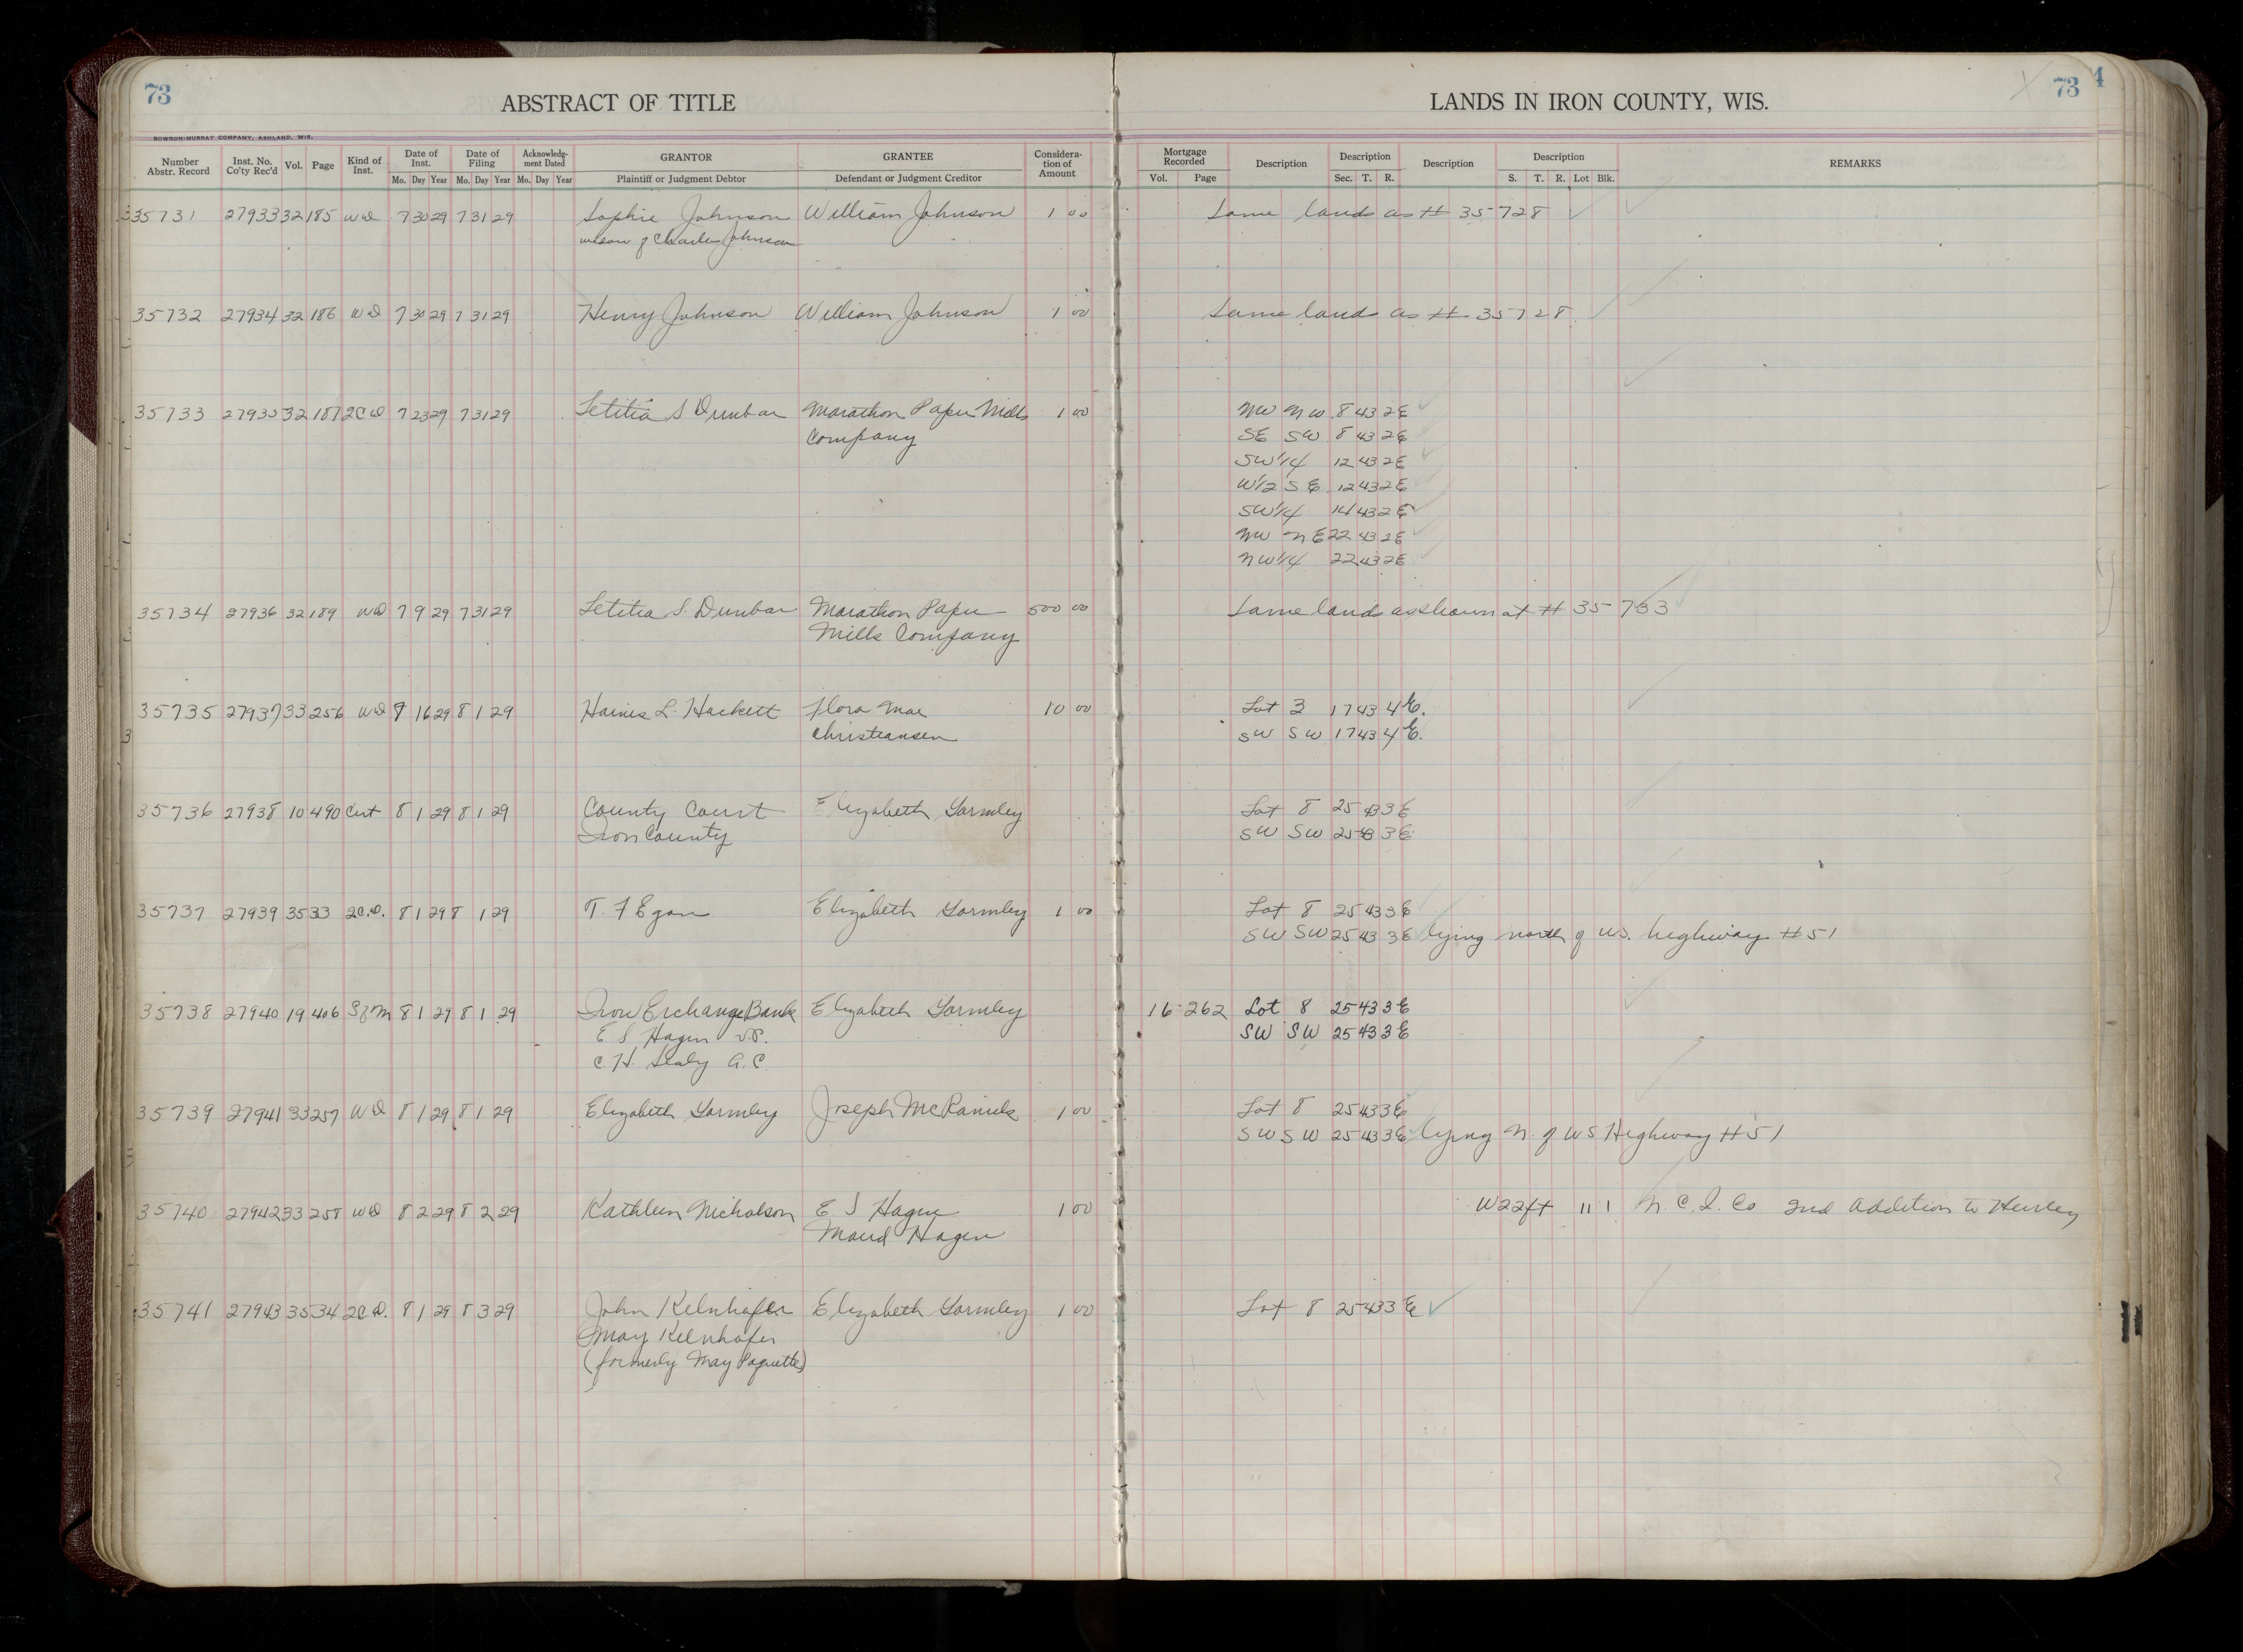 73
ABSTRACT OF TITLE
LANDS IN IRON COUNTY, WIS.
73
4
BOWRON-MURRAY COMPANY, ASHLAND, WIS.
Number Abstr. Record Inst. No. Co'ty Rec'd Vol. Page Kind of Inst. Date of Inst. Date of Filing Acknowledg-ment Dated GRANTOR GRANTEE Considera-tion of Amount Mortgage Recorded Description Description Description Description REMARKS
Mo. Day Year Mo. Day Year Mo. Day Year Plaintiff or Judgment Debtor Defendant or Judgment Creditor Vol. Page Sec. T. R. S. T. R. Lot Blk.
35731 27933 32 185 WD 7 30 29 7 31 29 Sophie Johnson William Johnson 1 00 Same lands as # 35728
widow of Charles Johnson
35732 27934 32 186 WD 7 30 29 7 31 29 Henry Johnson William Johnson 1 00 Same land as # 35728
35733 27935 32 187 2CD 7 23 29 7 31 29 Letitia S Dunbar Marathon Paper Mills 1 00 NW NW 8 43 2E
Company SE SW 8 43 2E
SW1/4 12 43 2E
W1/2 SE 12 43 2E
SW1/4 14 43 2E
NW NE 22 43 2E
NW1/4 22 43 2E
35734 27936 32 189 WD 7 9 29 7 31 29 Letitia S. Dunbar Marathon Paper 500 00 Same lands as shown at # 35733
Mills Company
35735 27937 33 256 WD 7 16 29 8 1 29 Haines L. Hackett Flora Mae 10 00 Lot 3 17 43 4E.
Christiansen SW SW 17 43 4E.
35736 27938 10 490 Cert 8 1 29 8 1 29 County Court Elizabeth Gormley Lot 8 25 43 3E
Iron County SW SW 25 43 3E
35737 27939 35 33 2C.D. 8 1 29 8 1 29 T. F Egan Elizabeth Gormley 1 00 Lot 8 25 43 3E
SW SW 25 43 3E lying north of U.S. highway # 51
35738 27940 19 406 SfM 8 1 29 8 1 29 Iron Exchange Bank Elizabeth Gormley 16 262 Lot 8 25 43 3E
E S Hagen V.P. SW SW 25 43 3E
C. H. A.C.
35739 27941 33 257 WD 8 1 29 8 1 29 Elizabeth Gormley Joseph 1 00 Lot 8 25 43 3E
SW SW 25 43 3E lying N. of US Highway # 51
35740 27942 33 258 WD 8 2 29 8 2 29 Kathleen Nicholson E S Hagen 1 00 W22ft 11 1 N. C. I. Co 2nd Addition to Hurley
Maud Hagen
35741 27943 35 34 2C D. 8 1 29 8 3 29 John Kelnhofer Elizabeth Gormley 1 00 Lot 8 25 43 3E
May Kelnhofer
(formerly May Paquette)